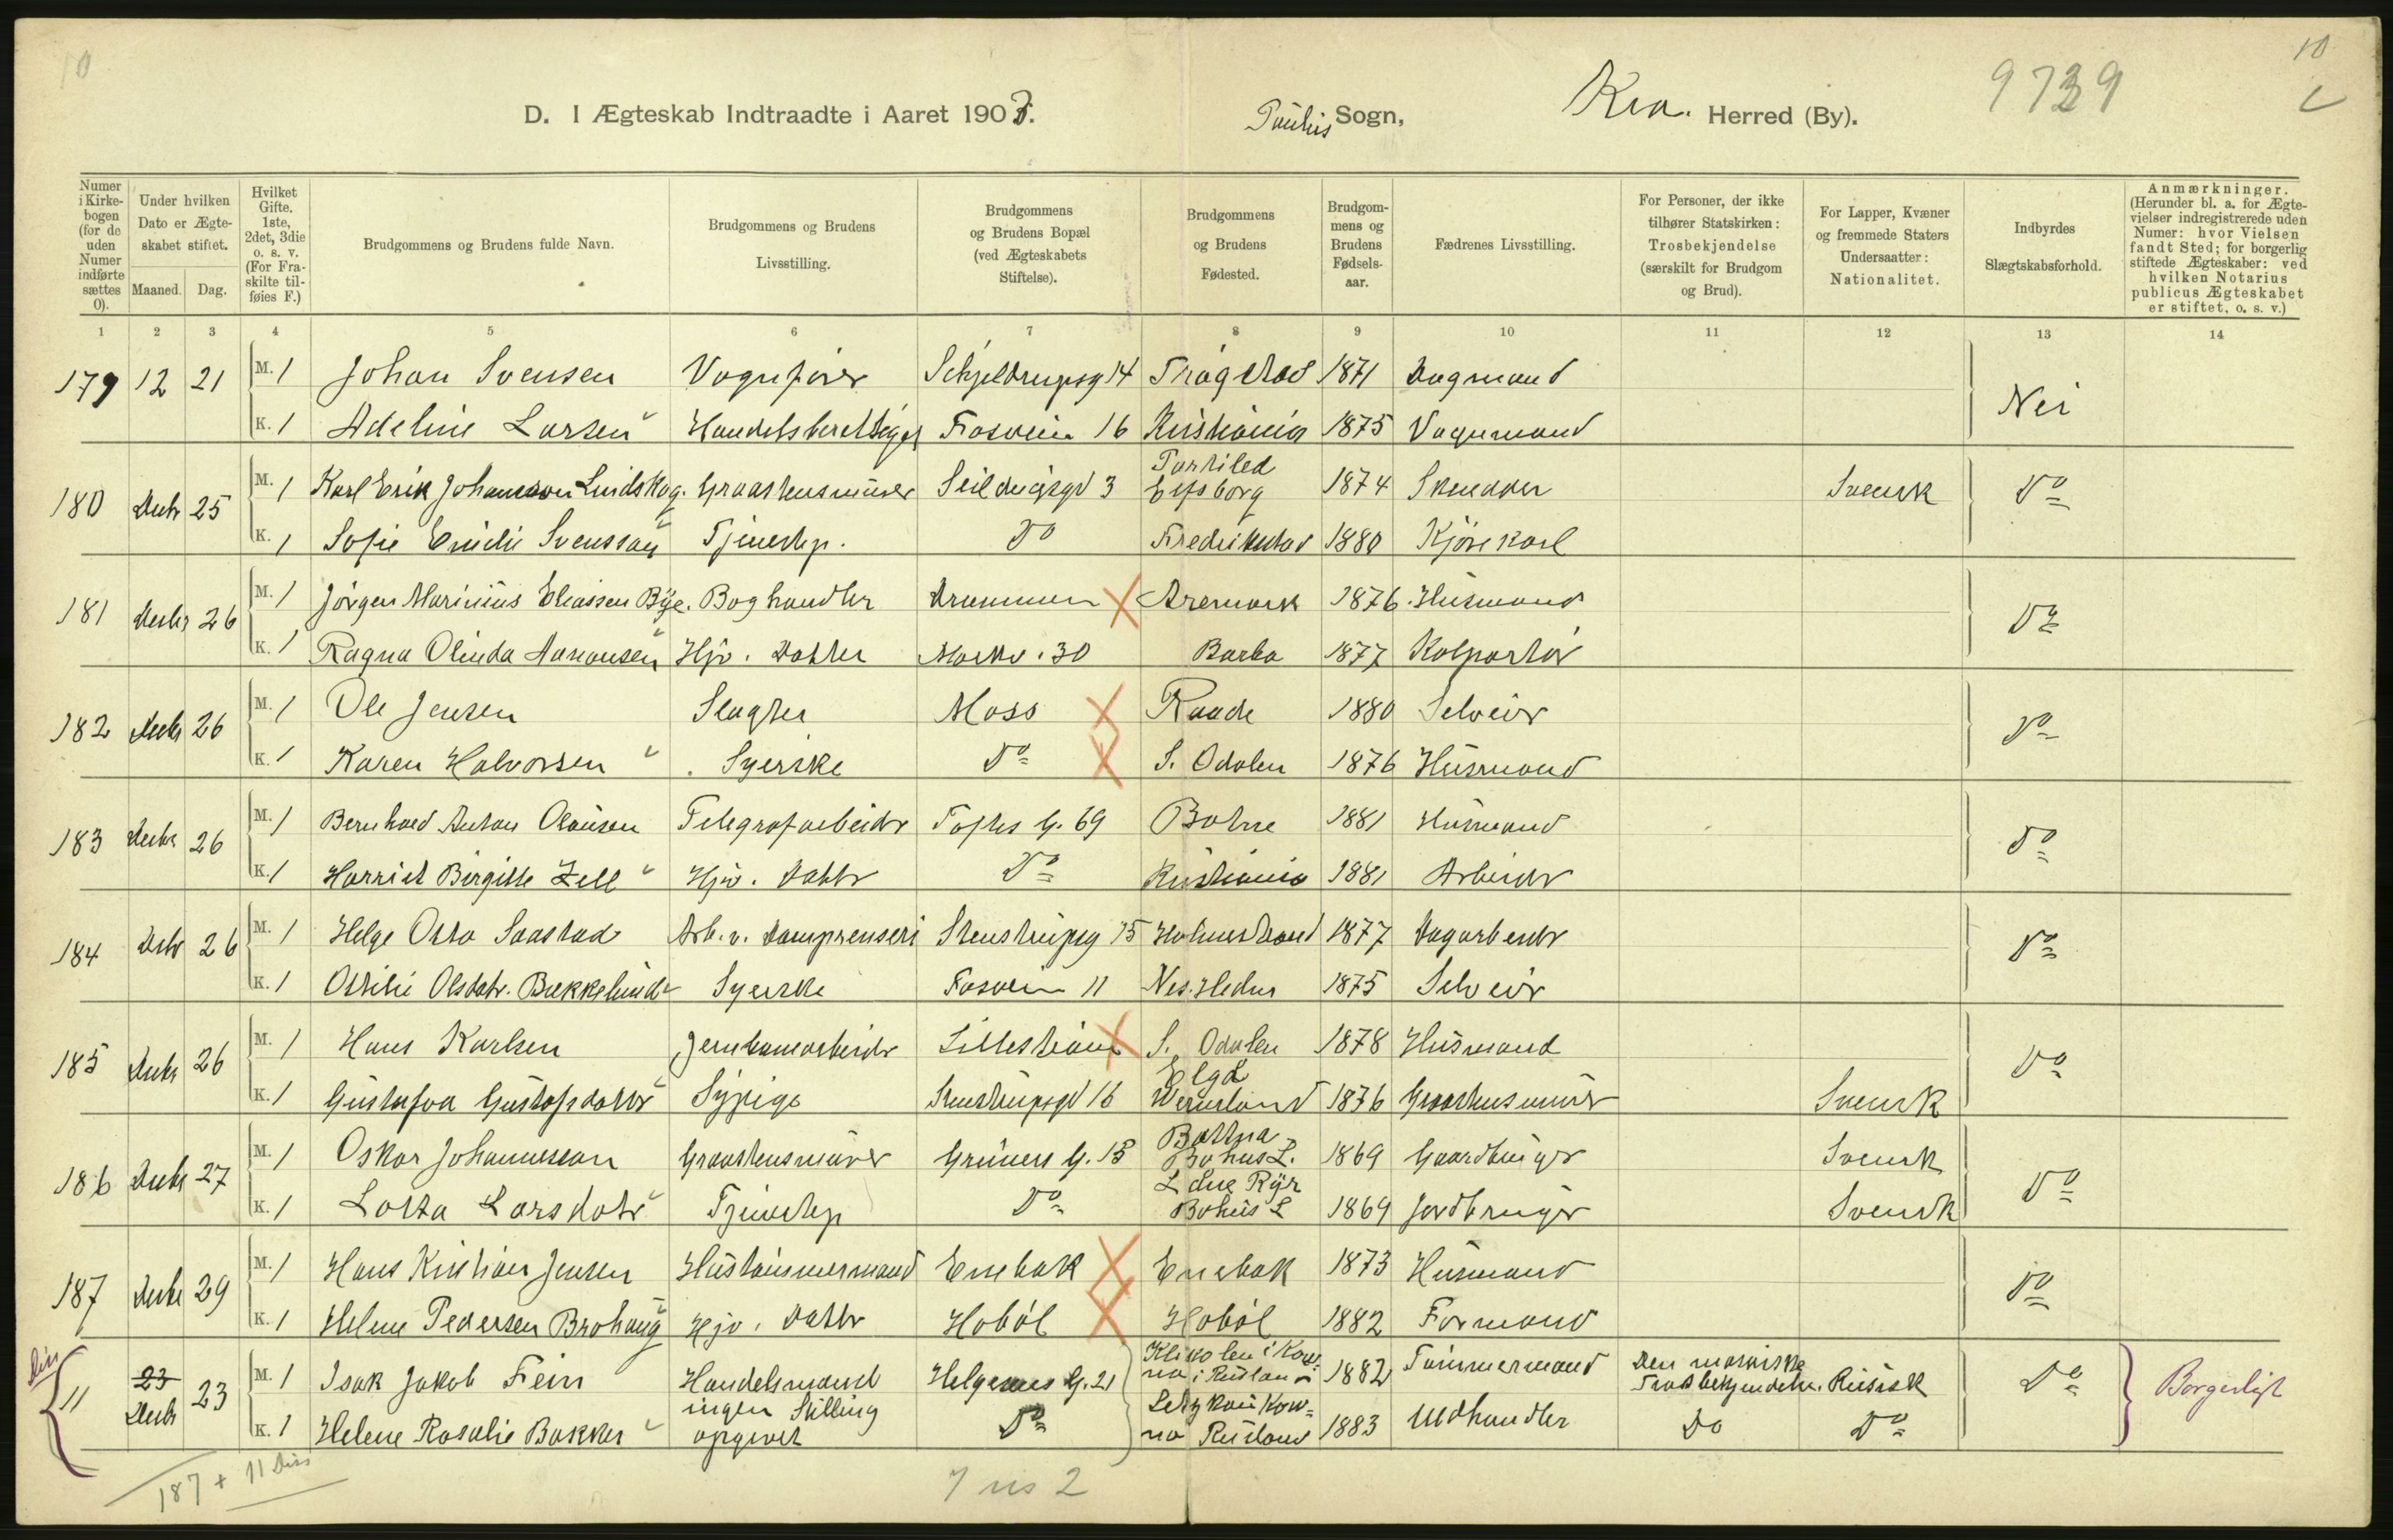 10
10
9739
D. I Ægteskab Indtraadte i Aaret 1903. Paulus Sogn, Kra. Herred (By).
Numer i Kirke-bogen (for de uden Numer indførte sættes 0).
Under hvilken Dato er Ægte-skabet stiftet.
Maaned. Dag.
Hvilket Gifte. 1ste, 2det, 3die o. s. v. (For Fra-skilte til-føies F.)
Brudgommens og Brudens fulde Navn.
Brudgommens og Brudens Livsstilling.
Brudgommens og Brudens Bopæl (ved Ægteskabets Stiftelse).
Brudgommens og Brudens Fødested.
Brudgom-mens og Brudens Fødsels-aar.
Fædrenes Livsstilling.
For Personer, der ikke tilhører Statskirken: Trosbekjendelse (særskilt for Brudgom og Brud).
For Lapper, Kvæner og fremmede Staters Undersaatter: Nationalitet.
Indbyrdes Slægtskabsforhold.
Anmærkninger. (Herunder bl. a. for Ægte-vielser indregistrerede uden Numer: hvor Vielsen fandt Sted; for borgerlig stiftede Ægteskaber: ved hvilken Notarius publicus Ægteskabet er stiftet, o. s. v.)
1 2 3 4 5 6 7 8 9 10 11 12 13 14
179 12 21 M. 1 Johan Svensen Vognfører Schjeldrupsg 14 Trøgstad 1871 Dagmand Nei
K. 1 Adeline Larsen Handelsberettiget Fosvein 16 Kristiania 1875 Vognmand
180 Decbr 25 M. 1 Karl Erik Johansson Lindskog. Graastensmurer Seildugsgd 3 Elfsborg 1874 Skrædder Svensk Do
K. 1 Sofie Emilie Svensson Tjenestep. Do Fredrikstad 1880 Kjørekarl
181 Decbr 26 M. 1 Jørgen Marinius Eliassen Bye. Boghandler Drammen Aremark 1876 Husmand Do
K. 1 Ragna Olinda Aanonsen Hjv. Datter Markv. 30 Barbo 1877 Kolportør
182 Decbr 26 M. 1 Ole Jensen Slagter Moss Raade 1880 Selveier Do
K. 1 Karen Halvorsen Syerske Do S. Odalen 1876 Husmand
183 Decbr 26 M. 1 Bernhard Anton Olausen Telegrafarbeider Toftes G. 69 Botne 1881 Husmand Do
K. 1 Harriet Birgitte Zell Hjv. Datter Do Kristiania 1881 Arbeider
184 Dcbr 26 M. 1 Helge Otto Saastad Arb. v. Damprenseri Stenstrupsg 15 Holmestrand 1877 Dagarbeider Do
K. 1 Ottilie Olsdatr. Bækkelund Syerske Fosvein 11 Nes. Hedm 1875 Selveier
185 Decbr 26 M. 1 Hans Karlsen Jernbanearbeider Lillestrøm S. Odalen 1878 Husmand Do
K. 1 Gustafva Gustafsdatter Sypige Stenstrupsgd 16 Elgå Wermland 1876 Graastensmurer Svensk
186 Decbr 27 M. 1 Oskar Johannesson Graastensmurer Grüners G. 15 Bottna Bohus L. 1869 Gaardbruger Svensk Do
K. 1 Lotta Larsdatr Tjenestep Do Ryr Bohus L 1869 Jordbruger Svensk
187 Decbr 29 M. 1 Hans Kristian Jensen Hustømmermand Enebak Enebak 1873 Husmand Do
K. 1 Helene Pedersen Brohaug Hjv. Datter Hobøl Hobøl 1882 Formand
Diss 11 23 Decbr 23 M. 1 Isak Jakob Fein Handelsmand Helgesens G. 21 i Kowno i Rusland 1882 Tømmermand Den mosaiske Trosbekjendelse. Russisk Do Borgerligt
K. 1 Helene Rosalie Bakker ingen Stilling opgivet Do Kowno Rusland 1883 Uldhandler Do Do
187 + 11 Diss
7 us 2